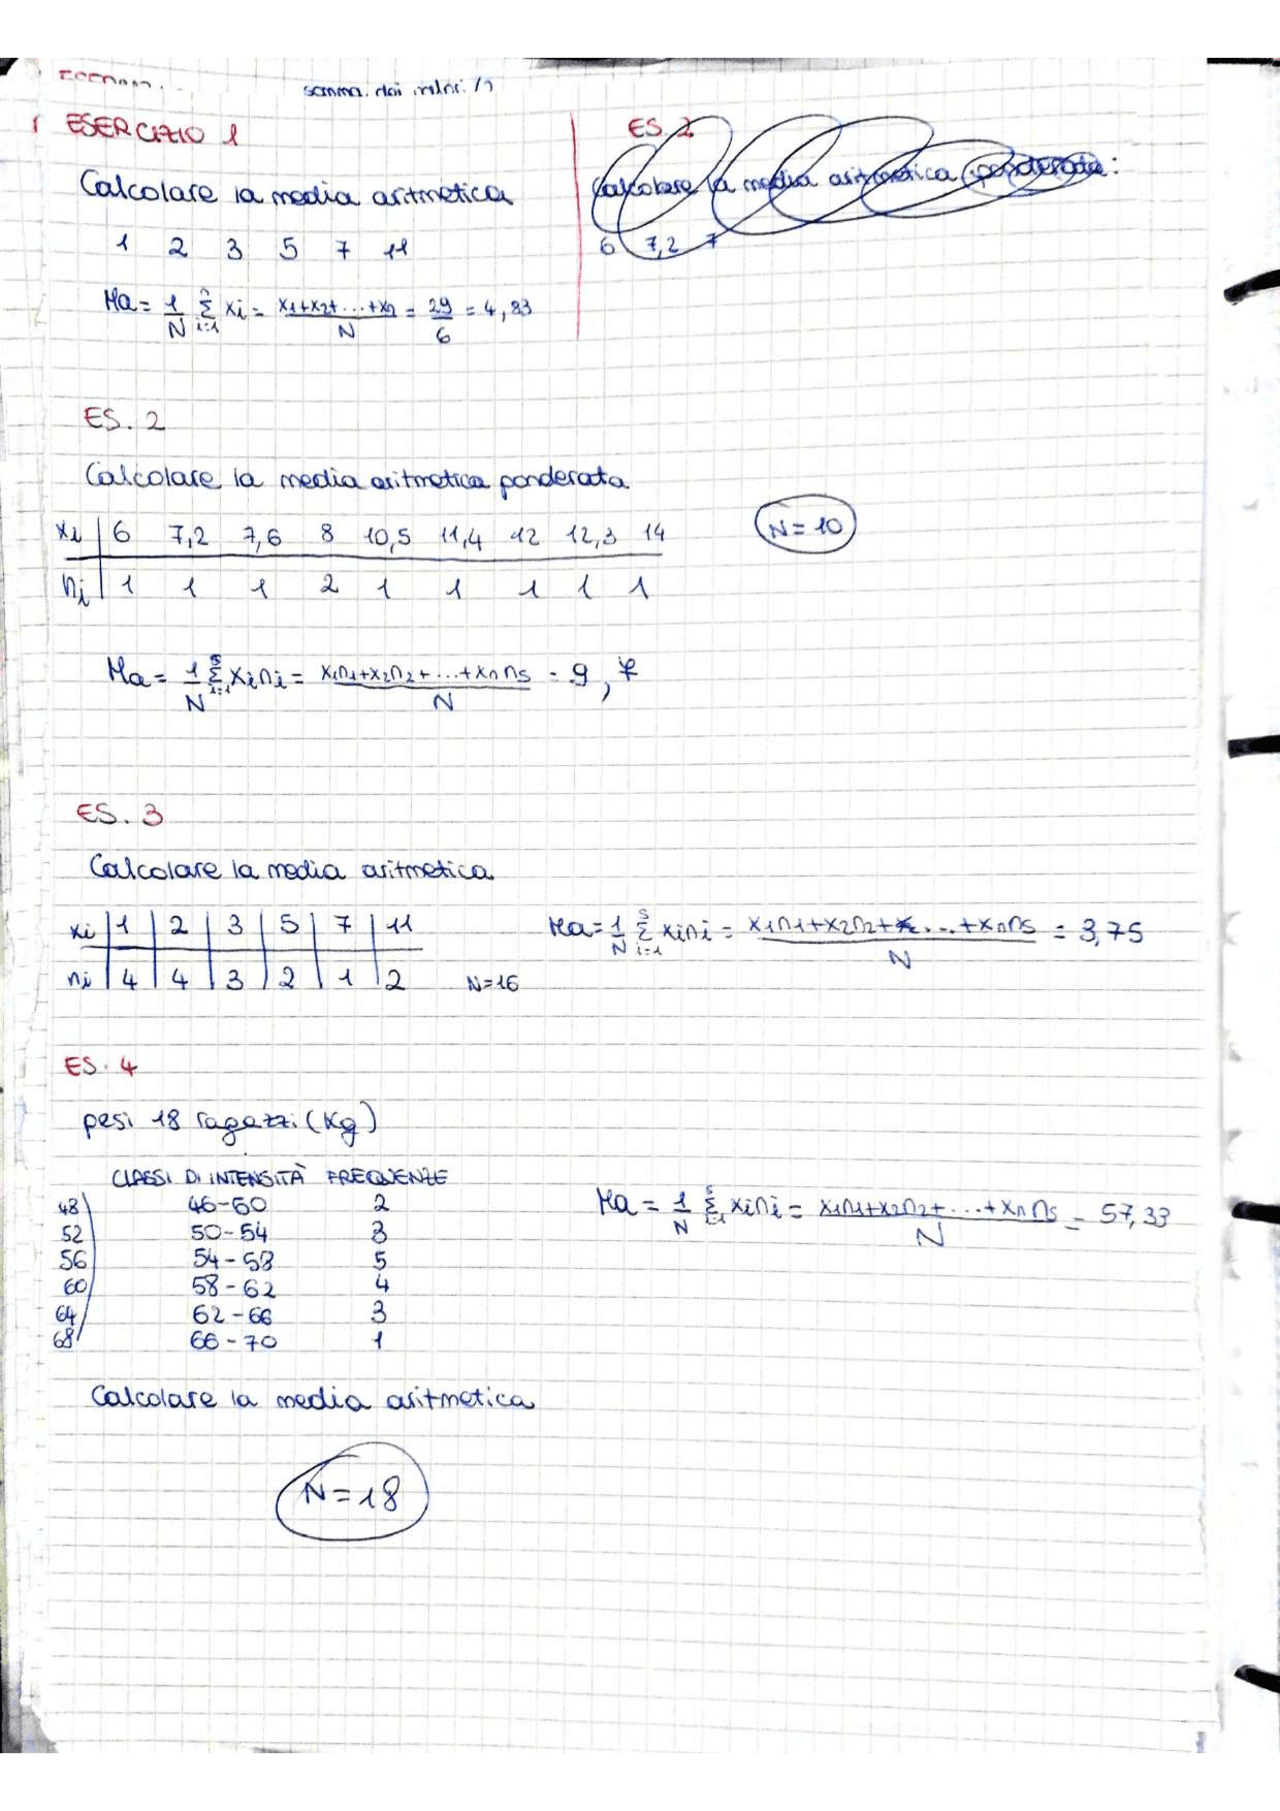 somma dei valori /n
ESERCIZIO 1
Calcolare la media aritmetica
1 2 3 5 7 11
Ma = 1/N Σ i=1 n xi = x1+x2+...+xn / N = 29/6 = 4,83
ES. 2
Calcolare la media aritmetica ponderata:
6 7,2 7
ES. 2
Calcolare la media aritmetica ponderata
xi | 6 7,2 7,6 8 10,5 11,4 12 12,3 14
ni | 1 1 1 2 1 1 1 1 1
N=10
Ma = 1/N Σ i=1 s xini = x1n1+x2n2+...+xnns / N = 9,7
ES. 3
Calcolare la media aritmetica
xi | 1 | 2 | 3 | 5 | 7 | 11
ni | 4 | 4 | 3 | 2 | 1 | 2
N=16
Ma = 1/N Σ i=1 s xini = x1n1+x2n2+...+xnns / N = 3,75
ES. 4
pesi 18 ragazzi (Kg)
CLASSI DI INTENSITÀ FREQUENZE
48 46-50 2
52 50-54 3
56 54-58 5
60 58-62 4
64 62-66 3
68 66-70 1
Ma = 1/N Σ i=1 s xini = x1n1+x2n2+...+xnns / N = 57,33
Calcolare la media aritmetica
N=18